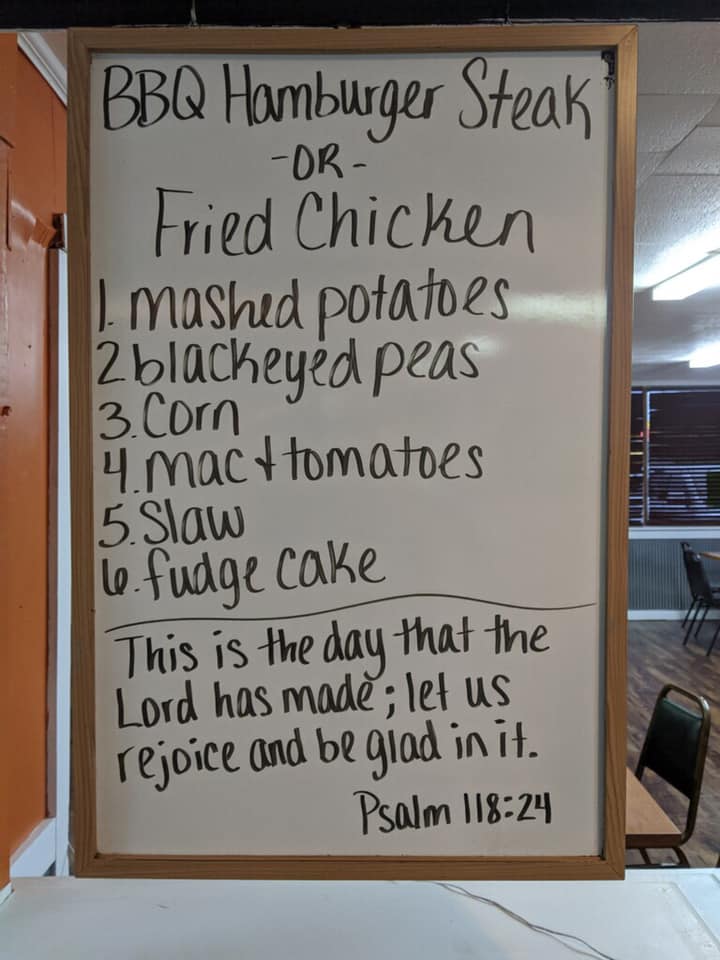 BBQ Hamburger Steak
-OR-
Fried Chicken
1. mashed potatoes
2 blackeyed peas
3. Corn
4. mac & tomatoes
5. Slaw
6. fudge cake
This is the day that the
Lord has made; let us
rejoice and be glad in it.
Psalm 118:24